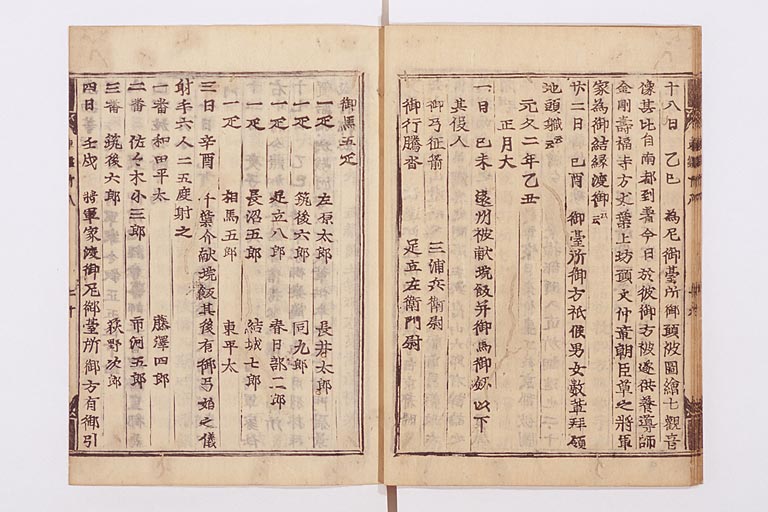 十八日　乙巳　為尼御臺所御願被圖繪七觀音
像甚比自南都到着今日於彼御方被遂供養導師
金剛壽福寺方丈葉上坊頭文仲章朝臣草之將軍
家為御結縁渡御云云
廿二日　己酉　御臺所御方祇候男女數輩拜領
地頭職云云
元久二年乙丑
正月大
一日　己未　遠州被獻埦飯并御馬御釼以下
其役人
御弓征箭　三浦兵衛尉
御行騰沓　足立左衛門尉
御馬五疋
一疋　左原太郎　長井太郎
一疋　筑後六郎　同九郎
一疋　足立八郎　春日部二郎
一疋　長沼五郎　結城七郎
一疋　相馬五郎　東平太
三日　辛酉　千葉介獻埦飯其後有御弓始之儀
射手六人二五度射之
一番　和田平太　藤澤四郎
二番　佐々木小三郎　市河五郎
三番　筑後六郎　荻野次郎
四日　壬戌　將軍家渡御尼御臺所御方有御引